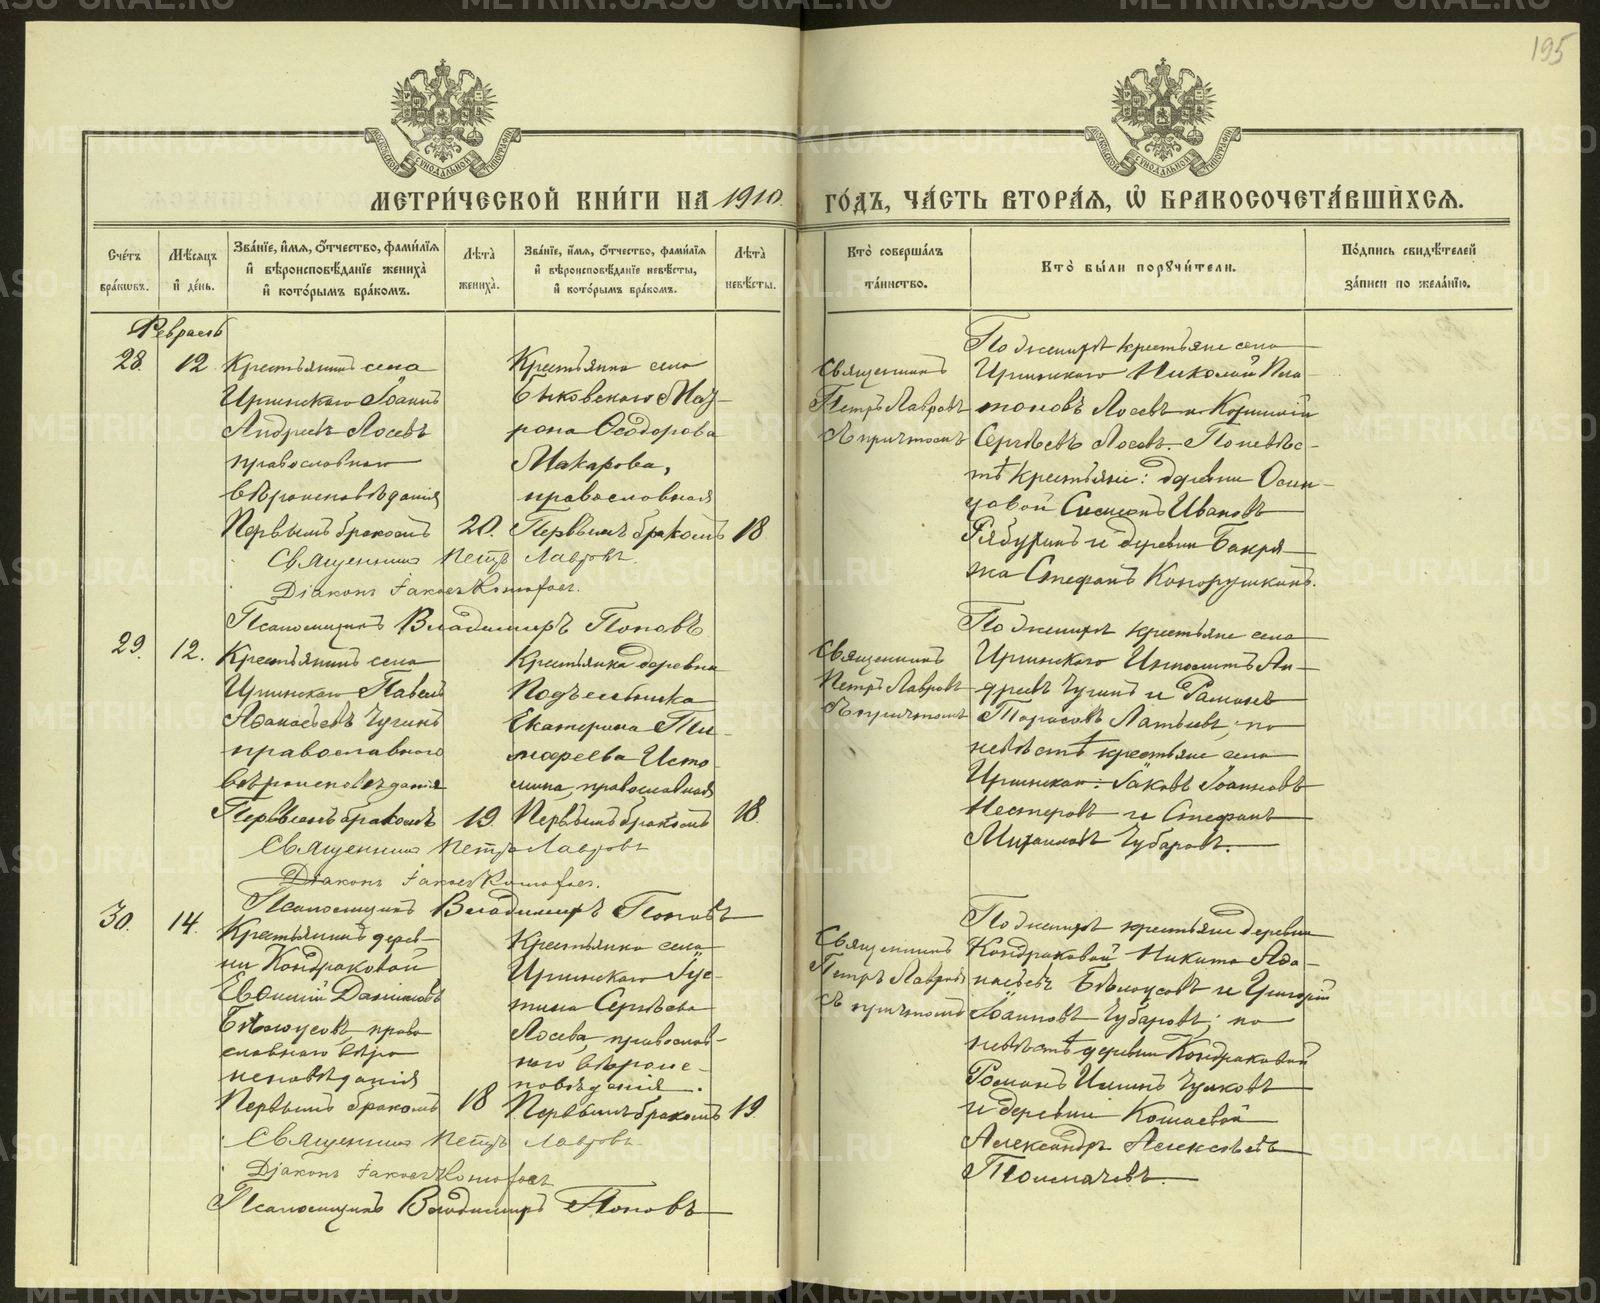 195
МЕТРИ́ЧЕСКОЙ КНИ́ГИ НА 1910 ГО́ДЪ, ЧА́СТЬ ВТОРА́Я, Ѡ БРАКОСОЧЕТА́ВШИХСЯ.
Сче́тъ бра́кѡвъ.
Мѣ́сяцъ и҆ де́нь.
Зва́нїе, и҆́мя, ѻ҆́тчество, фами́лїя и҆ вѣроисповѣ́данїе жениха̀ и҆ кото́рымъ бра́комъ.
Лѣ́та жениха̀.
Зва́нїе, и҆́мя, ѻ҆́тчество, фами́лїя и҆ вѣроисповѣ́данїе невѣ́сты, и҆ кото́рымъ бра́комъ.
Лѣ́та невѣ́сты.
Кто̀ соверша́лъ та́инство.
Кто̀ бы́ли порꙋчи́тели.
По́дпись свидѣ́телей за́писи по жела́нїю.
Февраль
28.
12
Крестьянинъ села
Иргинскаго Іоаннъ
Андреевъ Лосевъ
православнаго
вѣроисповѣданія
Первымъ бракомъ
20.
Крестьянка села
Быковскаго Мат-
рона Ѳеодорова
Макарова,
православная
Первымъ бракомъ
18
Священникъ
Петръ Лавровъ
съ причтомъ
По женихѣ крестьяне села
Иргинскаго Николай Пла-
тоновъ Лосевъ и Корнилій
Сергѣевъ Лосевъ. По невѣс-
тѣ крестьяне: деревни Осин-
цовой Симеонъ Ивановъ
Рябухинъ и деревни Бакря-
жа Стефанъ
Священникъ Петръ Лавровъ.
Діаконъ Іаковъ
Псаломщикъ Владимиръ Поповъ
29.
12.
Крестьянинъ села
Иргинскаго Павелъ
Аѳанасьевъ Чугинъ
православнаго
вѣроисповѣданія
Первымъ бракомъ
19.
Крестьянка деревни
Подъельника
Екатерина Ти-
моѳеева Исто-
мина, православная
Первымъ бракомъ
18.
Священникъ
Петръ Лавровъ
съ причтомъ
По женихѣ крестьяне села
Иргинскаго Ипполитъ Ан-
дреевъ Чугинъ и Романъ
Тарасовъ Латышевъ; по
невѣстѣ крестьяне села
Иргинскаго: Іаковъ Іоанновъ
Нестеровъ и Стефанъ
Михаиловъ Чубаровъ.
Священникъ Петръ Лавровъ
Діаконъ Іаковъ
Псаломщикъ Владимиръ Поповъ
30.
14.
Крестьянинъ дерев-
ни Кондраковой
Евѳимій Даниловъ
Бѣлоусовъ, право
славнаго вѣро
исповѣданія
Первымъ бракомъ
18
Крестьянка села
Иргинскаго Іус-
тина Сергѣева
Лосева, православ-
наго вѣроис-
повѣданія.
Первымъ бракомъ
19
Священникъ
Петръ Лавровъ
съ причтомъ
По женихѣ крестьяне деревни
Кондраковой Никита Аѳа-
насьевъ Бѣлоусовъ и Григорій
Іоанновъ Чубаровъ; по
невѣстѣ деревни Кондраковой
Романъ Ильинъ Чулковъ
и деревни Кошаевой
Александръ Алексѣевъ
Толмачевъ.
Священникъ Петръ Лавровъ.
Діаконъ Іаковъ
Псаломщикъ Владимиръ Поповъ
METRIKI.GASO-URAL.RU